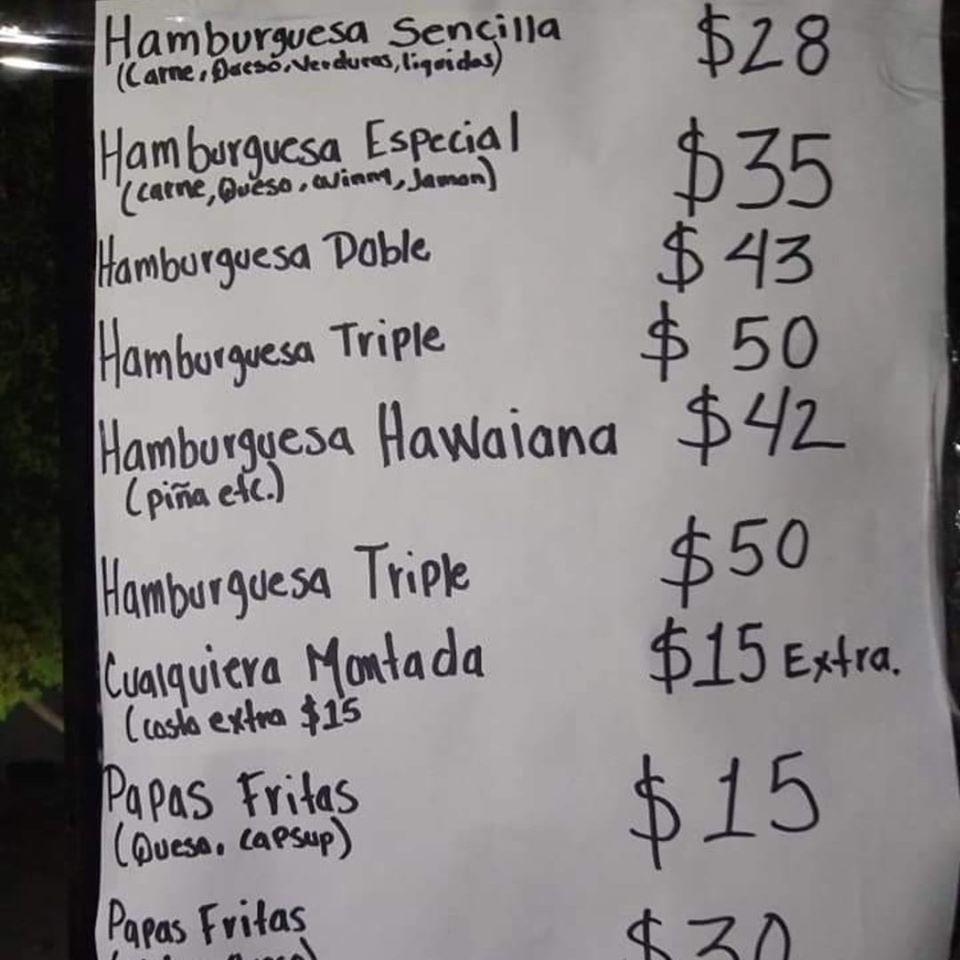 Hamburguesa Sencilla $28
(Carne, Queso, Verduras, liquidas)
Hamburguesa Especial $35
(Carne, Queso, Jamon)
Hamburguesa Doble $43
Hamburguesa Triple $50
Hamburguesa Hawaiana $42
(piña etc.)
Hamburguesa Triple $50
Cualquiera Montada $15 Extra.
(costo extra $15
Papas Fritas $15
(Queso, capsup)
Papas Fritas $30